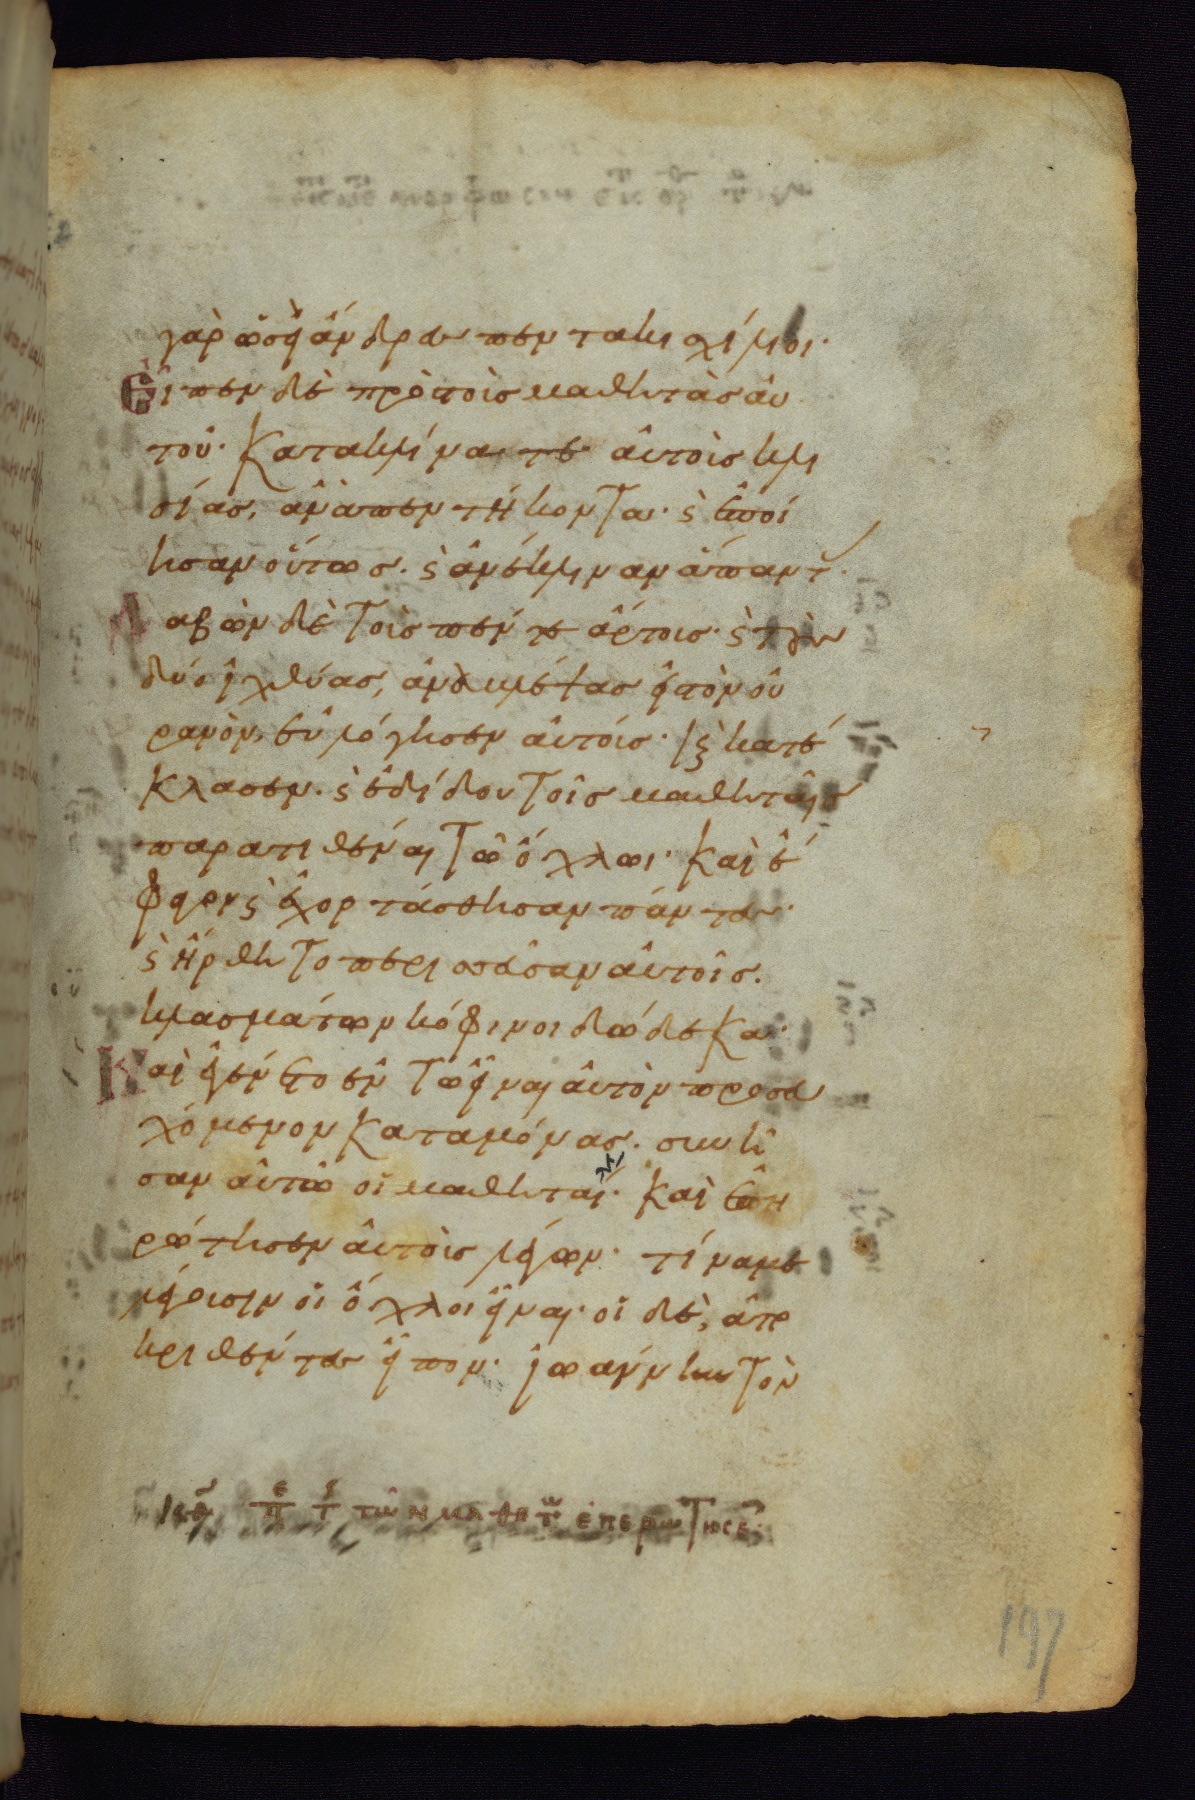 γὰρ ὡσεὶ ἄνδρες πεντακισχίλιοι·
Εἶπεν δὲ πρὸς τοὺς μαθητὰς αὐ
τοῦ· Κατακλίνατε αὐτοὺς κλι
σίας, ἀνὰ πεντήκοντα· ϛ ἐποί
ησαν οὕτως· ϛ ἀνέκλιναν ἅπαντ
Λαβὼν δὲ τοὺς πέντε ἄρτους· ϛ τοὺς
δύο ἰχθύας, ἀναβλέψας εἰς τὸν οὐ
ρανὸν, εὐλόγησεν αὐτούς· ϛ κατέ
κλασεν· ϛ ἐδίδου τοῖς μαθηταῖς
παρατιθέναι τῶ ὄχλωι· Καὶ ἔ
φαγον ϛ ἐχορτάσθησαν πάντες·
ϛ ἤρθη το περισσεῦσαν αὐτοῖς·
κλασμάτων κόφινοι δώδεκα·
Καὶ ἐγένετο ἐν τῶ εἶναι αὐτὸν προσευ
χόμενον καταμόνας· συνῆ
σαν αὐτῶ οἱ μαθηταί· Καὶ ἐπη
ρώτησεν αὐτοὺς λέγων· τίνα με
λέγουσιν οἱ ὄχλοι εἶναι· οἱ δὲ, ἀπο
κριθέντες εἶπον· ἰωάννην τὸν
τῶν μαθητ ἐπερωτησε
197